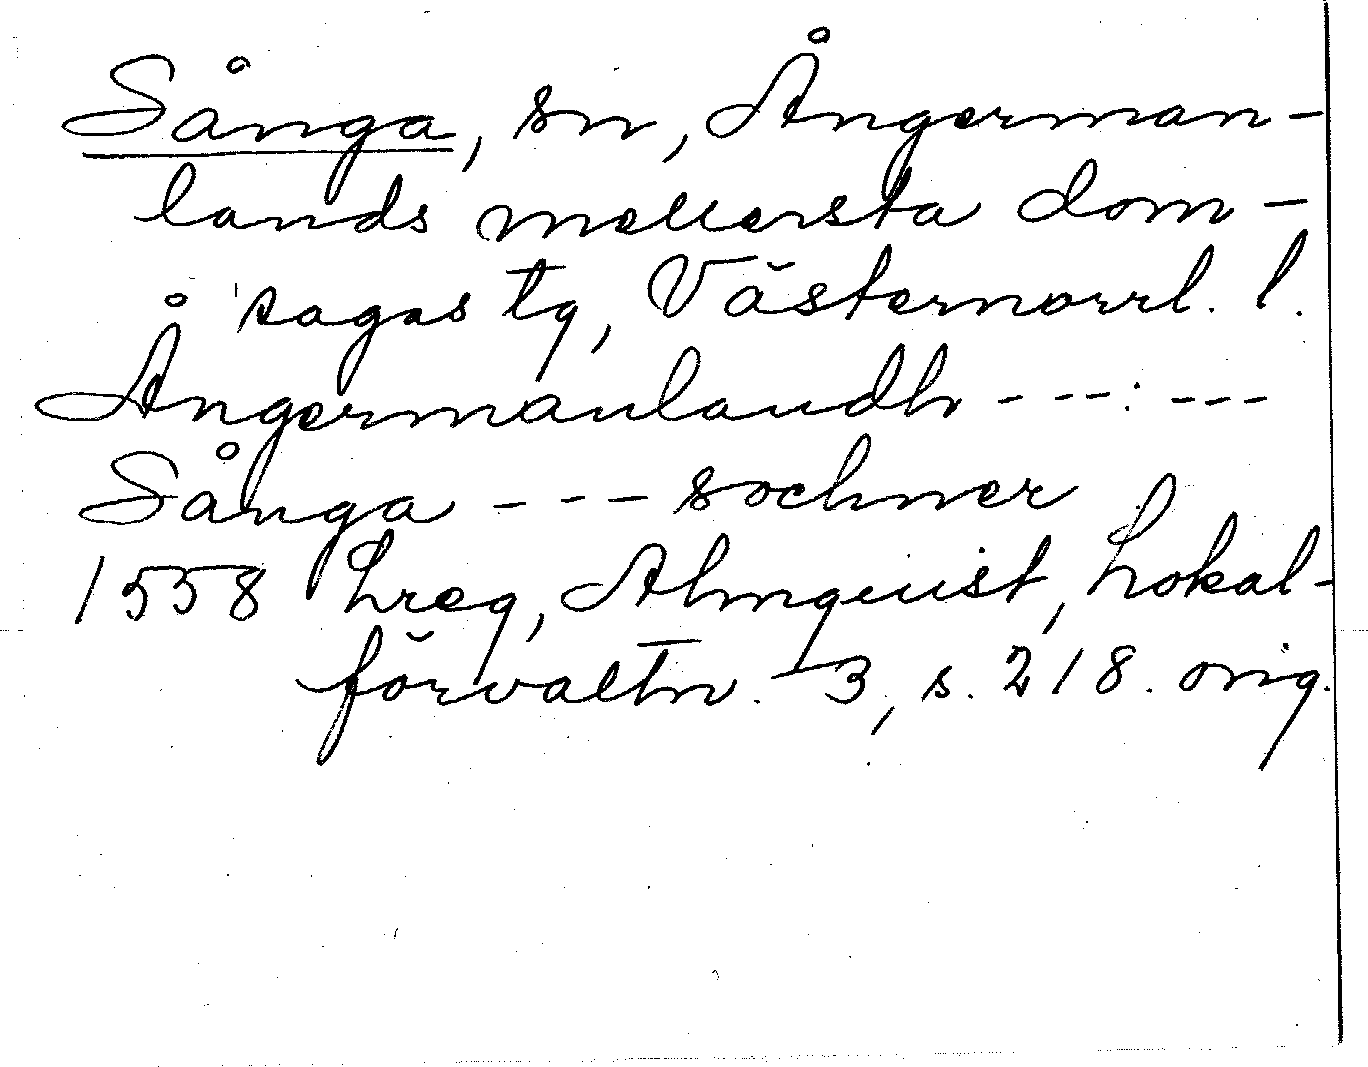 Sånga, sn, Ångerman-
lands mellersta dom-
sagas tg, Västernorrl. l.
Ångermanlandh - - - : - - -
Sånga - - - sochner
1558 hreg, Almquist, Lokal-
förvaltn. 3, s. 218. orig.